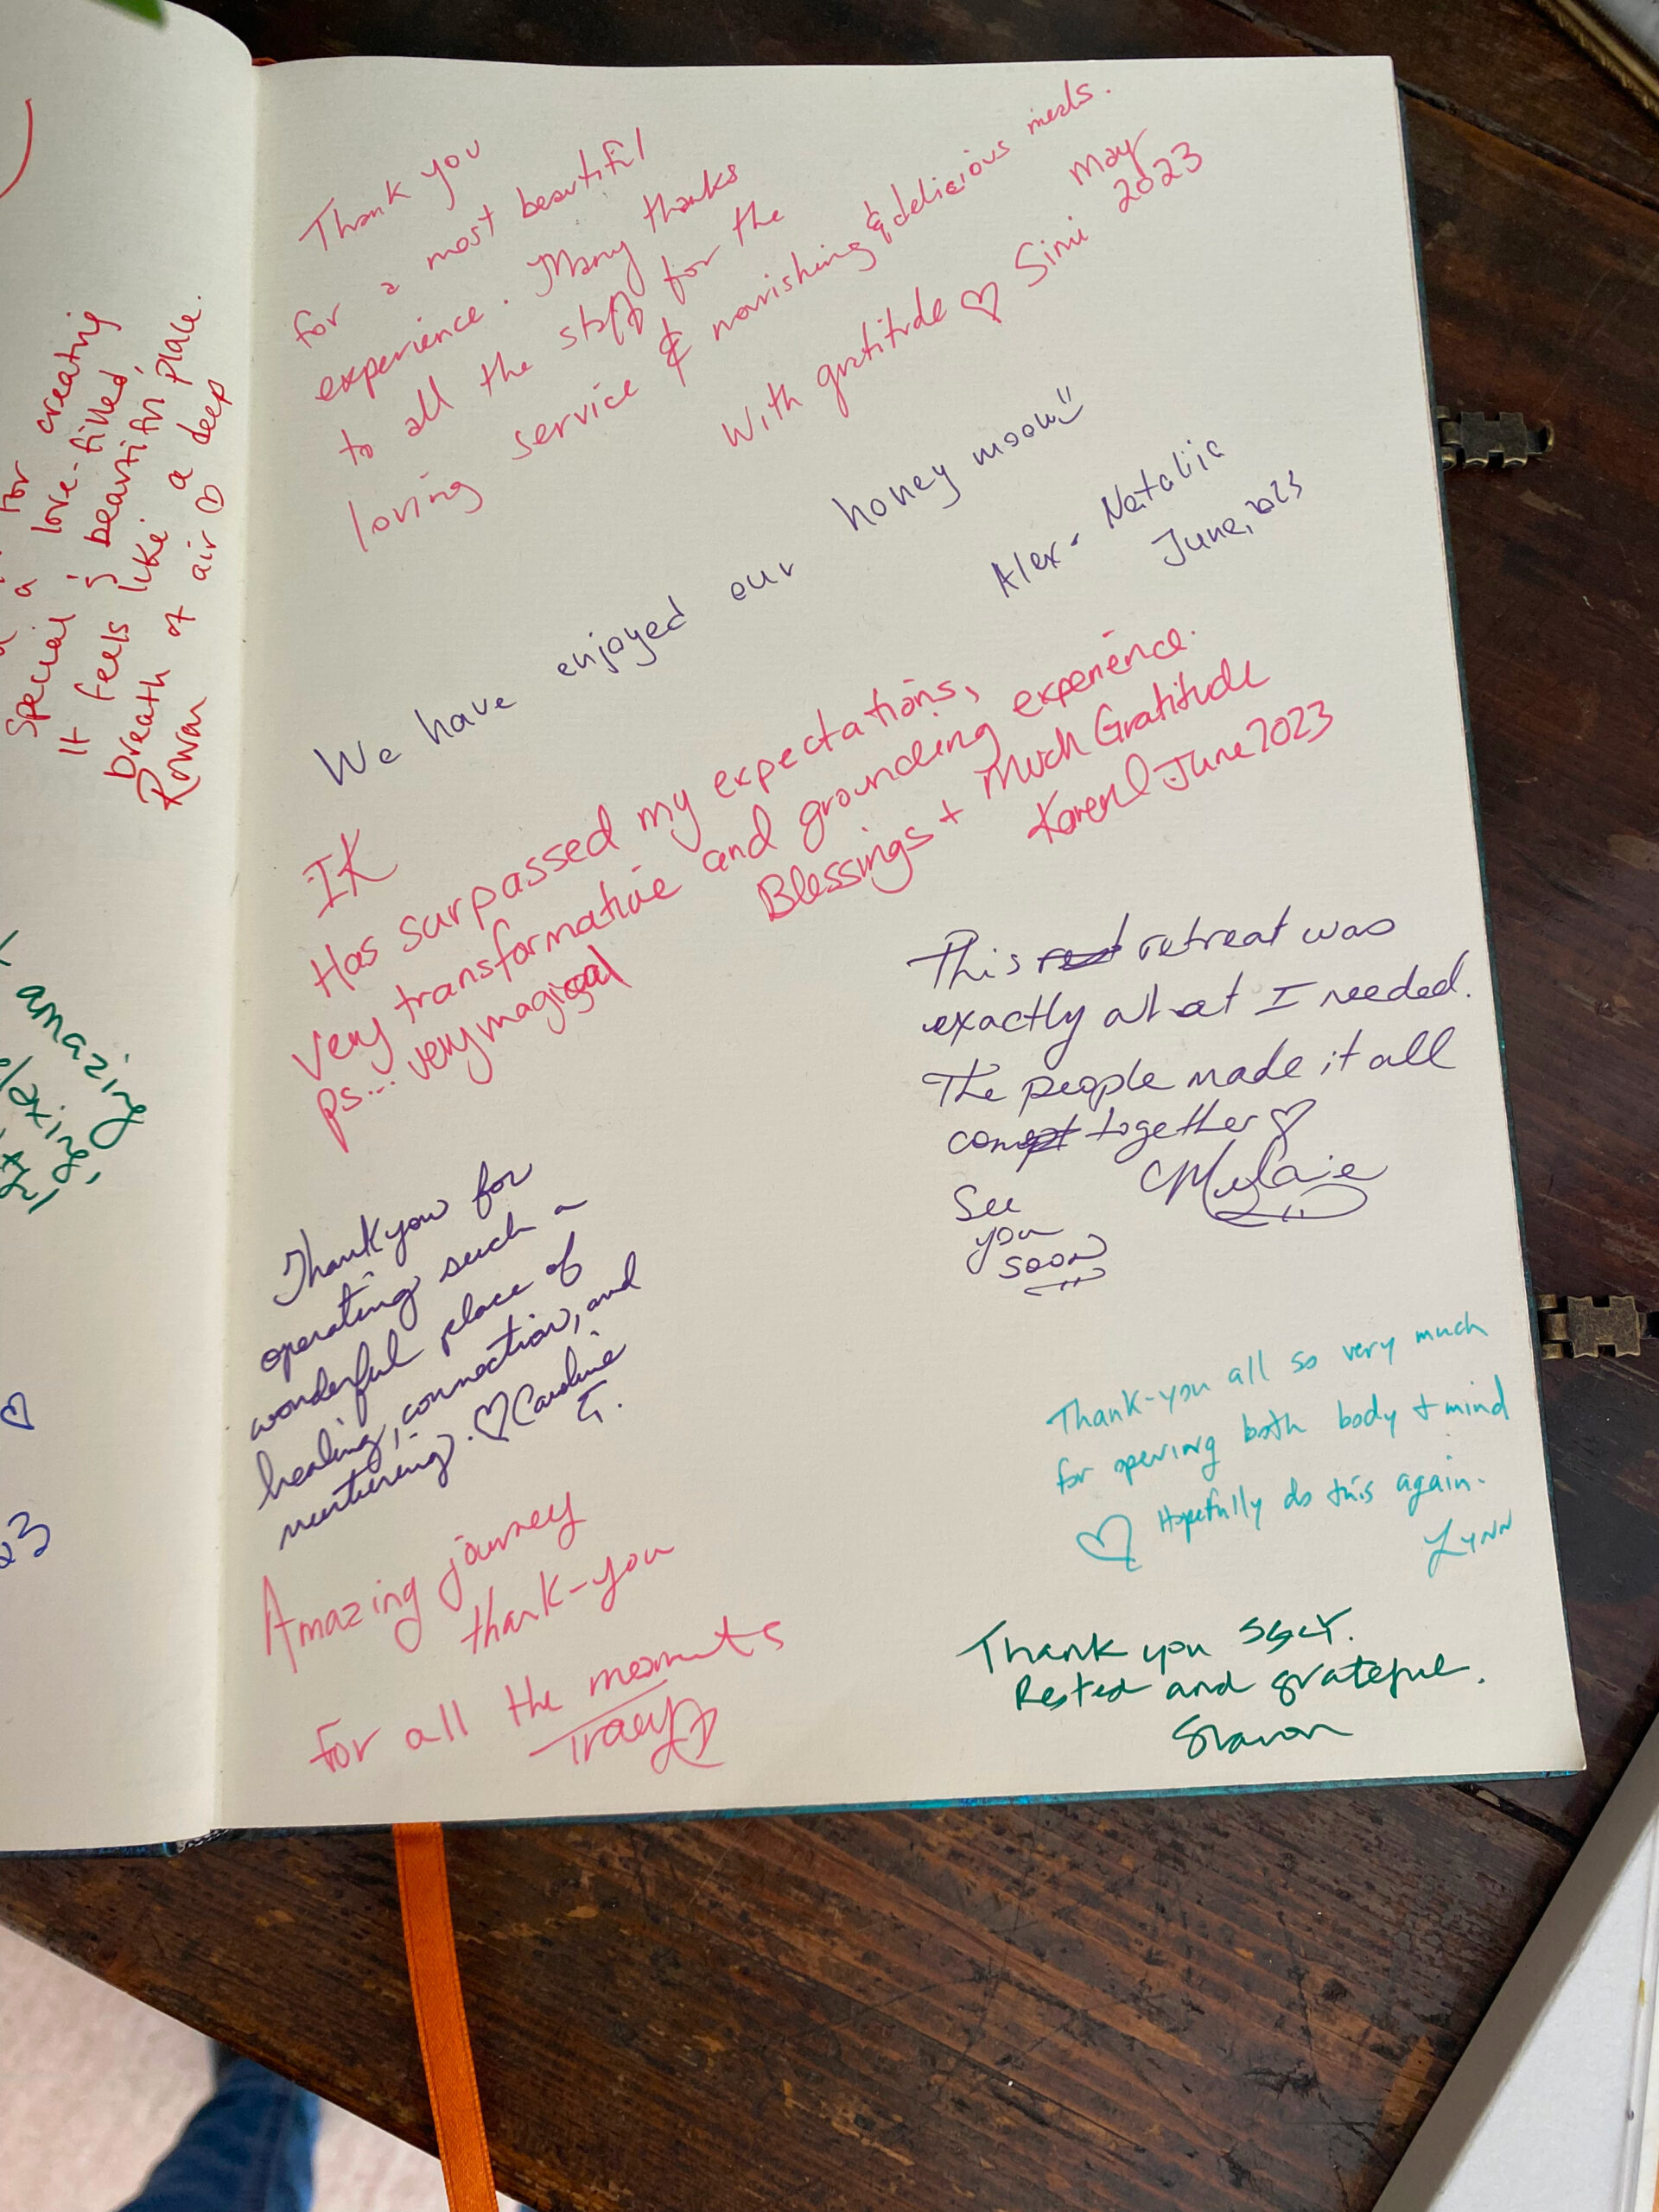 for creating
a love-filled,
special & beautiful place.
It feels like a deep
breath of air ♡
Rowan
amazing
♡
23
Thank you
for a most beautiful
experience. Many thanks
to all the staff for the
loving service & nourishing & delicious meals.
With gratitude ♡ Simi May
2023
We have enjoyed our honey moon
Alex - Nataliia
June, 2023
IK
Has surpassed my expectations,
very transformative and grounding experience.
ps... very magical
Blessings + Much Gratitude
June 2023
This retreat was
exactly what I needed.
The people made it all
come together ♡
See
you
soon
Thank you for
operating such a
wonderful place of
healing, connection, and
nurturing. ♡ Caroline
G.
Thank-you all so very much
for opening both body + mind
♡ Hopefully do this again.
Lynn
Amazing journey
thank-you
for all the moments
Tracy
Thank you
Rested and grateful.
Sharon